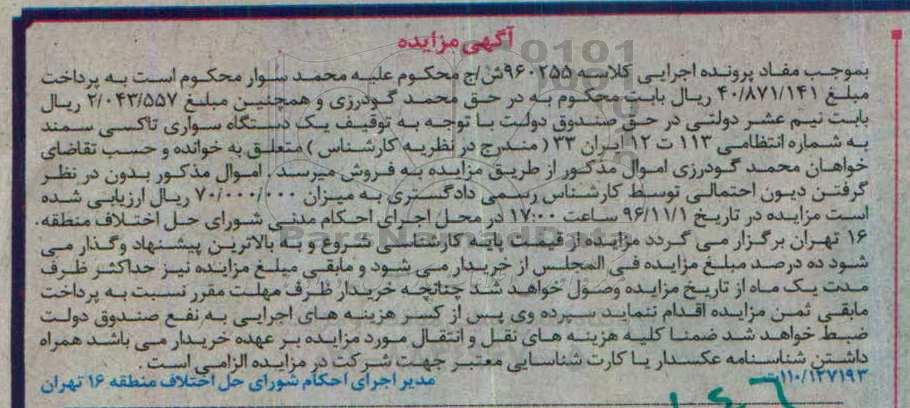 آگهی مزایده
بموجب مفاد پرونده اجرایی کلاسه ۹۶۰۲۵۵ش/ج محکوم علیه محمد سوار محکوم است به پرداخت
مبلغ ۴۰/۸۷۱/۱۴۱ ریال بابت محکوم به در حق محمد گودرزی و همچنین مبلغ ۲/۰۴۳/۵۵۷ ریال
بابت نیم عشر دولتی در حق صندوق دولت با توجه به توقیف یک دستگاه سواری تاکسی سمند
به شماره انتظامی ۱۱۳ ت ۱۲ ایران ۳۳ ( مندرج در نظریه کارشناس ) متعلق به خوانده و حسب تقاضای
خواهان محمد گودرزی اموال مذکور از طریق مزایده به فروش میرسد . اموال مذکور بدون در نظر
گرفتن دیون احتمالی توسط کارشناس رسمی دادگستری به میزان ۷۰/۰۰۰/۰۰۰ ریال ارزیابی شده
است مزایده در تاریخ ۹۶/۱۱/۱ ساعت ۱۷:۰۰ در محل اجرای احکام مدنی شورای حل اختلاف منطقه.
۱۶ تهران برگزار می گردد مزایده از قیمت پایه کارشناسی شروع و به بالاترین پیشنهاد وگذار می
شود ده درصد مبلغ مزایده فی المجلس از خریدار می شود و مابقی مبلغ مزایده نیز حداکثر ظرف
مدت یک ماه از تاریخ مزایده وصول خواهد شد چنانچه خریدار ظرف مهلت مقرر نسبت به پرداخت
مابقی ثمن مزایده اقدام ننماید سپرده وی پس از کسر هزینه های اجرایی به نفع صندوق دولت
ضبط خواهد شد ضمنا کلیه هزینه های نقل و انتقال مورد مزایده بر عهده خریدار می باشد همراه
داشتن شناسنامه عکسدار یا کارت شناسایی معتبر جهت شرکت در مزایده الزامی است .
۱۱۰/۱۲۷۱۹۳ت
مدیر اجرای احکام شورای حل اختلاف منطقه ۱۶ تهران